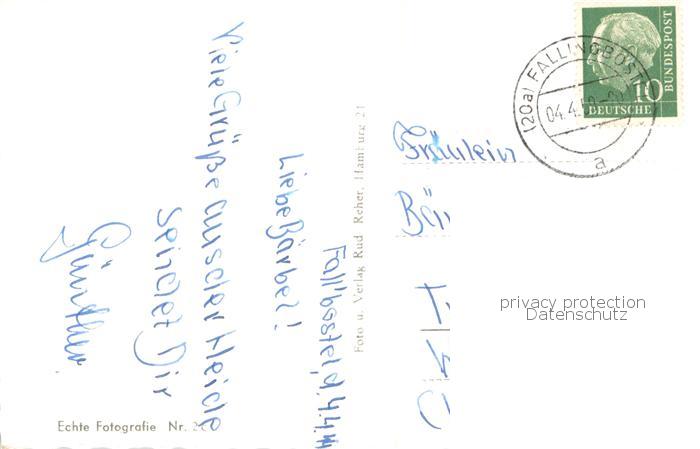 Fallbostel, d. 4.4.
Liebe Bärbel!
Viele Grüße aus der Heide
sendet Dir
Günther
Echte Fotografie Nr. 2
Foto u. Verlag Rud Reher, Hamburg 21
(20a) FALLINGBOSTEL
04.4.
a
DEUTSCHE
BUNDESPOST
10
Fräulein
Bär
privacy protection
Datenschutz